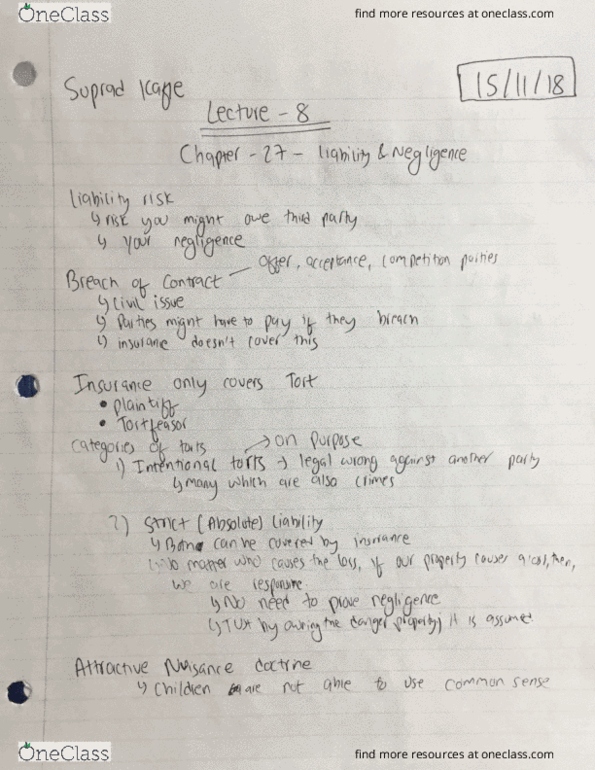 OneClass
find more resources at oneclass.com
15/11/18
Suprad
Lecture - 8
Chapter - 27 - Liability & Negligence
Liability risk
↳ risk you might owe third party
↳ your negligence
Breach of Contract — offer, acceptance, competition parties
↳ Civil issue
↳ Parties might have to pay if they breach
↳ insurane doesn't cover this
Insurance only covers Tort
• Plaintiff
• Tortfeasor
Categories of torts → on purpose
1) Intentional torts → legal wrong against another party
↳ many which are also crimes
2) Strict (Absolute) Liability
↳ can be covered by insurance
↳ No matter who causes the loss, if our property causes then,
we are
↳ No need to prove negligence
↳ by owing the danger property it is assumed
Attractive Nuisance doctrine
↳ Children are not able to use common sense
OneClass
find more resources at oneclass.com